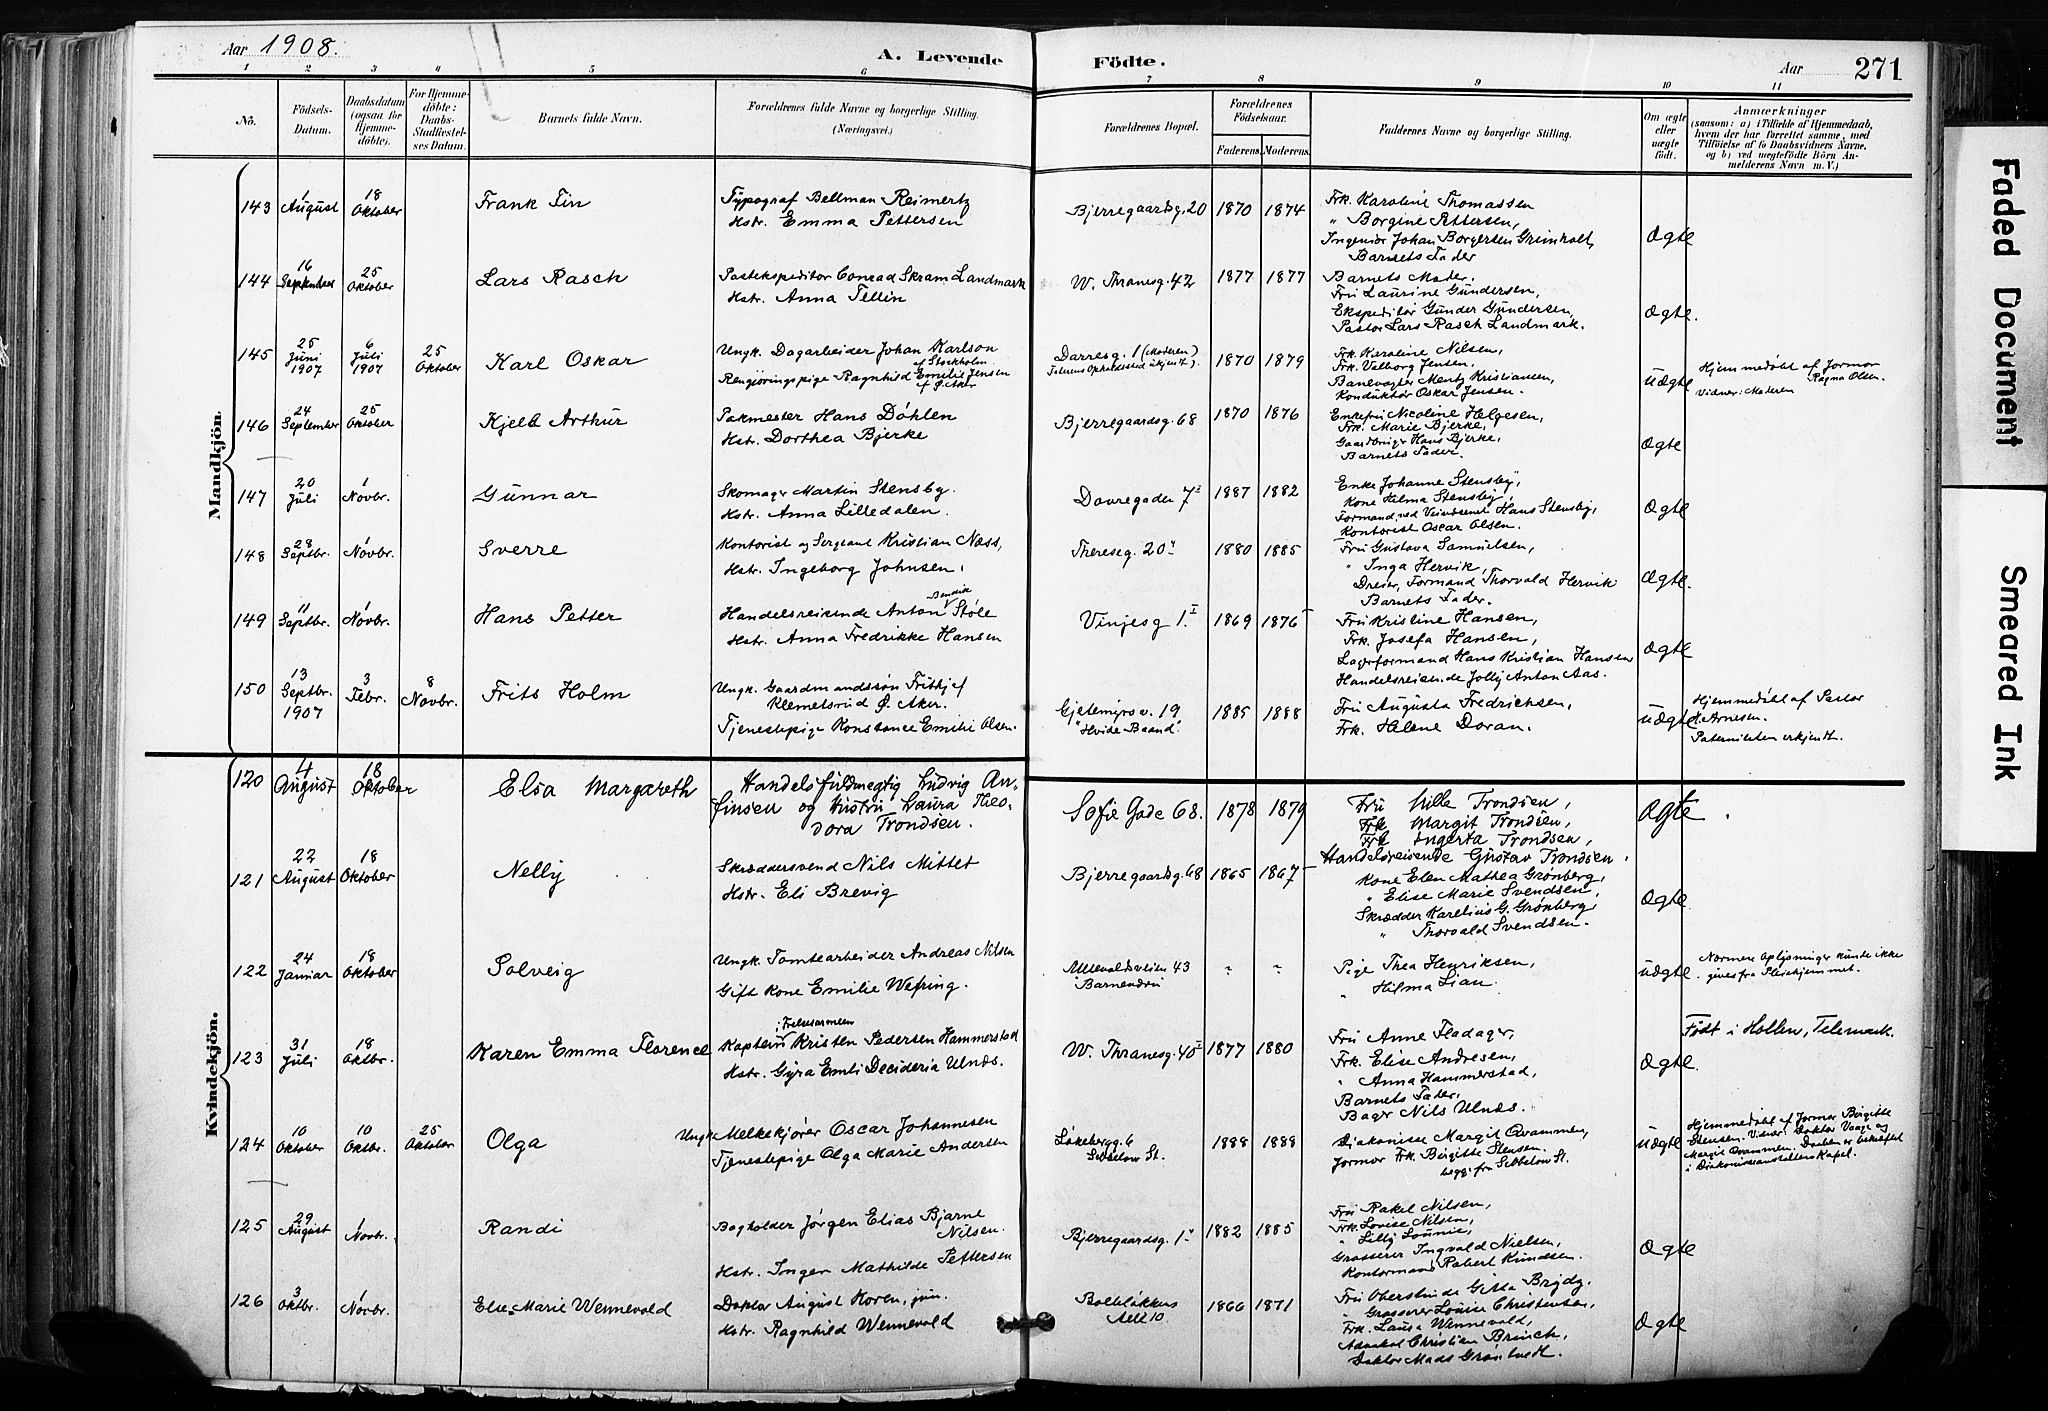 Aar 1908. A. Levende Födte. Aar 271
1 2 3 4 5 6 7 8 9 10 11
No. Födsels-Datum. Daabsdatum (ogsaa for Hjemme-döbte). For Hjemme-döbte: Daabs-Stadfæstel-ses Datum. Barnets fulde Navn. Forældrenes fulde Navne og borgerlige Stilling. (Næringsvei.) Forældrenes Bopæl. Forældrenes Födselsaar. Faderens. Moderens. Faddernes Navne og borgerlige Stilling. Om ægte eller uægte födt. Anmærkninger (saasom: a) i Tilfælde af Hjemmedaab, hvem der har forrettet samme, med Tilföielse af to Daabsvidners Navne, og b) ved uægtefödte Börn Anmelderens Navn m. V.)
Mandkjön.
143 1 August 18 Oktober Frank Finn
Typograf Bellman Reimertz
Hstr. Emma Pettersen
Bjerregaardsg. 20 1870 1874
Frk. Karoline Thomassen
" Borgine Pettersen,
Ingeniør Johan Borgersen Grimholt,
Barnets Fader
Ægte
144 16 September 25 Oktober Lars Rasch
Postekspeditør Conrad Skram Landmark
Hstr. Anna Tellin
W. Thranesg. 42 1877 1877
Barnets Moder.
Fru Laurine Gundersen,
Ekspeditør Gunder Gundersen,
Pastor Lars Rasch Landmark.
Ægte.
145 25 Juni 1907 6 Juli 1907 25 Oktober Karl Oskar
Ungk. Dagarbeider Johan Karlson
af Stockholm
Rengjøringspige Ragnhild Emilie Jensen
af Ø. Aker
Darresg. 1 (Moderen)
Faderens Opholdssted ukjendt). 1870 1879
Frk. Karoline Nilsen,
Frk. Valborg Jensen,
Banevogter Mentz Kristiansen,
Konduktør Oskar Jensen.
Uægte
Hjemmedøbt af Jormor
Ragna Olsen.
Vidner: Moderen
146 24 September 25 Oktober Kjell Arthur
Pakmester Hans Döhlen
Hstr. Dorthea Bjerke
Bjerregaardsg. 68 1870 1876
Enkefru Nicoline Helgesen,
Frk. Marie Bjerke,
Gaardbruger Hans Bjerke,
Barnets Fader.
Ægte
147 20 Juli 1 Novbr. Gunnar
Skomager Martin Stensby.
Hstr. Anna Lilledalen.
Dovregaden 7 I 1887 1882
Enke Johanne Stensby,
Kone Hilma Stensby,
Formand ved Veivæsenet Hans Stensby,
Kontorist Oscar Olsen.
Ægte
148 28 Septbr. 1 Novbr. Sverre
Kontorist og Sergeant Kristian Næss,
Hstr. Ingeborg Johnsen.
Theresesg. 20 II 1880 1885
Fru Gustava Samuelsen,
" Inga Hervik,
Dreier, Formand Thorvald Hervik
Barnets Fader.
Ægte.
149 11 Septbr. 1 Novbr. Hans Petter
Handelsreisende Anton Bendik Støle
Hstr. Anna Fredrikke Hansen
Vinjesg 1. I 1869 1876
Fru Kristine Hansen,
Frk. Josefa Hansen,
Lagerformand Hans Kristian Hansen
Handelsreisende Jolly Anton Aas.
Ægte
150 13 Septbr. 1907 3 Febr. 8 Novbr. Frits Holm
Ungk. Gaardmandssøn Frithjof
Klemetsrud Ø. Aker.
Tjenestepige Konstance Emilie Olsen.
Gjetemyrsv. 19
"Hvide Baand". 1885 1888
Fru Augusta Fredrichsen,
Frk. Helene Doran.
Uægte
Hjemmedøbt af Pastor
N. Arnesen.
Paterniteten erkjendt.
Kvindekjön.
120 4 August 18 Oktober Elsa Margareth
Handelsfuldmægtig Ludvig An-
finsen og Hustru Laura Theo-
dora Trondsen.
Sofie Gade 68. 1878 1879
Fru Mille Trondsen,
Frk Margit Trondsen,
Frk Ingerta Trondsen,
Handelsreisende Gustav Trondsen.
Ægte.
121 22 August 18 Oktober Nelly
Skræddersvend Nils Mittet
Hstr. Eli Brevig
Bjerregaardsg. 68 1865 1867
Kone Elen Mathea Grønberg,
" Elise Marie Svendsen,
Skrædder Karelius G. Grønberg,
" Thorvald Svendsen.
Ægte.
122 24 Januar 18 Oktober Solveig
Ungk. Tomtearbeider Andreas Nilsen
Gift Kone Emilie Wefring.
Ullevaldsveien 43
Barnendru - -
Pige Thea Henriksen,
" Hilma Lian.
Uægte.
Nærmere Oplysninger kunde ikke
gives fra Pleiehjemmet.
123 31 Juli 18 Oktbr. Karen Emma Florence
Kaptein i Frelsesarmeen Kristen Pedersen Hammerstad
Hstr. Gyra Emli Decideria Ulnæs.
W. Thranesg. 40 I 1877 1880
Fru Anne Fladager,
Frk. Elise Andresen,
" Anna Hammerstad,
Barnets Fader,
Bager Nils Ulnæs.
Ægte.
Født i Hollen, Telemark.
124 10 Oktober 10 Oktbr. 25 Oktober Olga
Ungk. Melkekjører Oscar Johannesen
Tjenestepige Olga Marie Andersen
Løkebergg. 6
Sebbelow St. 1888 1888
Diakonisse Margit Qvammen,
Jormor Frk. Birgitte Stensen.
begge fra Sebbelow St.
Uægte
Hjemmedøbt af Jormor Birgitte
Stensen. Vidner: Doktor Vaage og
Margit Qvammen. Daaben er bekræftet
i Diakonisseanstaltens Kapel.
125 29 August 1 Novbr. Randi
Bogholder Jørgen Elias Bjarne
Nilsen.
Hstr. Inger Mathilde Pettersen
Bjerregaardsg. 1 II 1882 1885
Fru Rakel Nilsen,
Frk. Lovise Nilsen,
" Lilly Lounie,
Grosserer Ingvald Nielsen,
Kontormand Robert Knudsen.
Ægte
126 3 Oktbr. 1 Novbr. Else Marie Wennevold
Doktor August Koren, jun.
Hstr. Ragnhild Wennevold
Bolteløkkens
Allé 10. 1866 1871
Fru Oberstinde Gitta Brydg.
" Grosserer Louise Christensen,
Frk. Laura Wennevold,
Advokat Christian Brinch,
Doktor Mads Grøntvedt.
Ægte
Faded Document
Smeared Ink